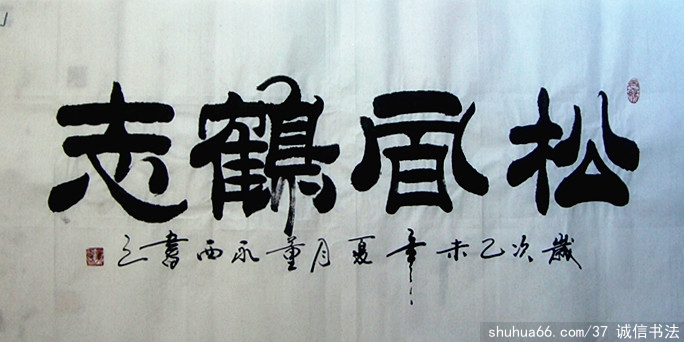 松風鶴志
歲次乙未年夏月董永西書之
shuhua66.com/37 诚信书法